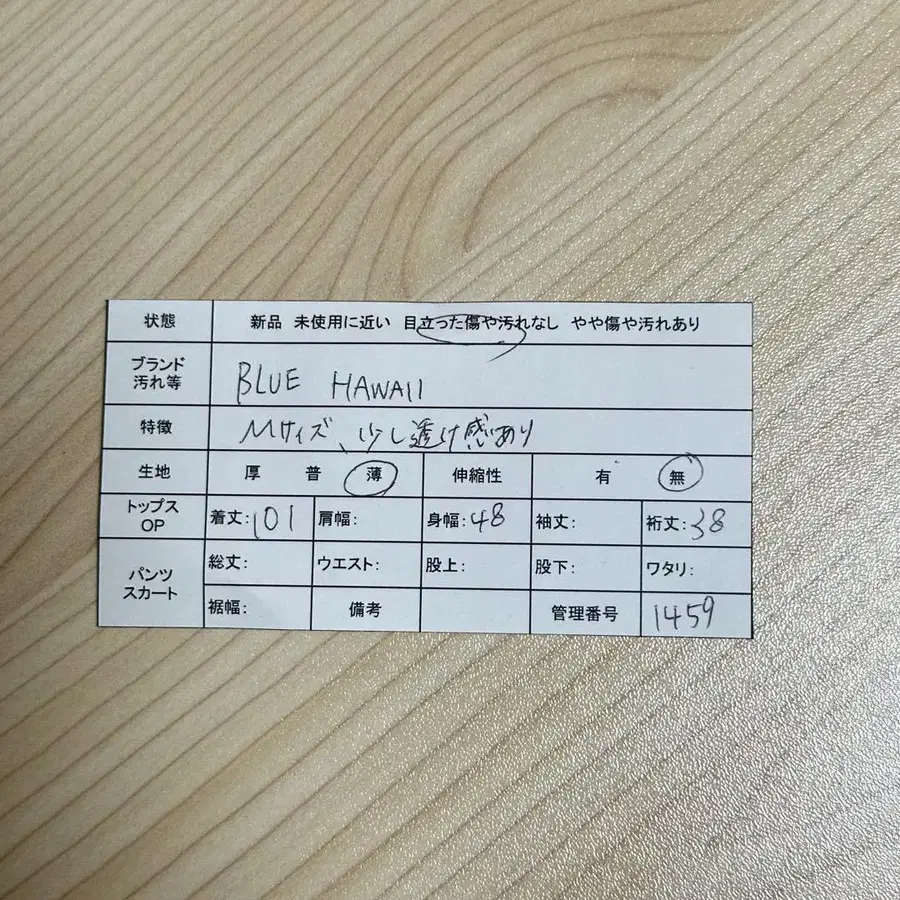 状態 新品 未使用に近い 目立った傷や汚れなし やや傷や汚れあり
ブランド
汚れ等 BLUE HAWAII
特徴 Mサイズ、少し透け感あり
生地 厚 普 薄 伸縮性 有 無
トップス
OP 着丈:101 肩幅: 身幅:48 袖丈: 裄丈:38
パンツ
スカート 総丈: ウエスト: 股上: 股下: ワタリ:
裾幅: 備考 管理番号 1459